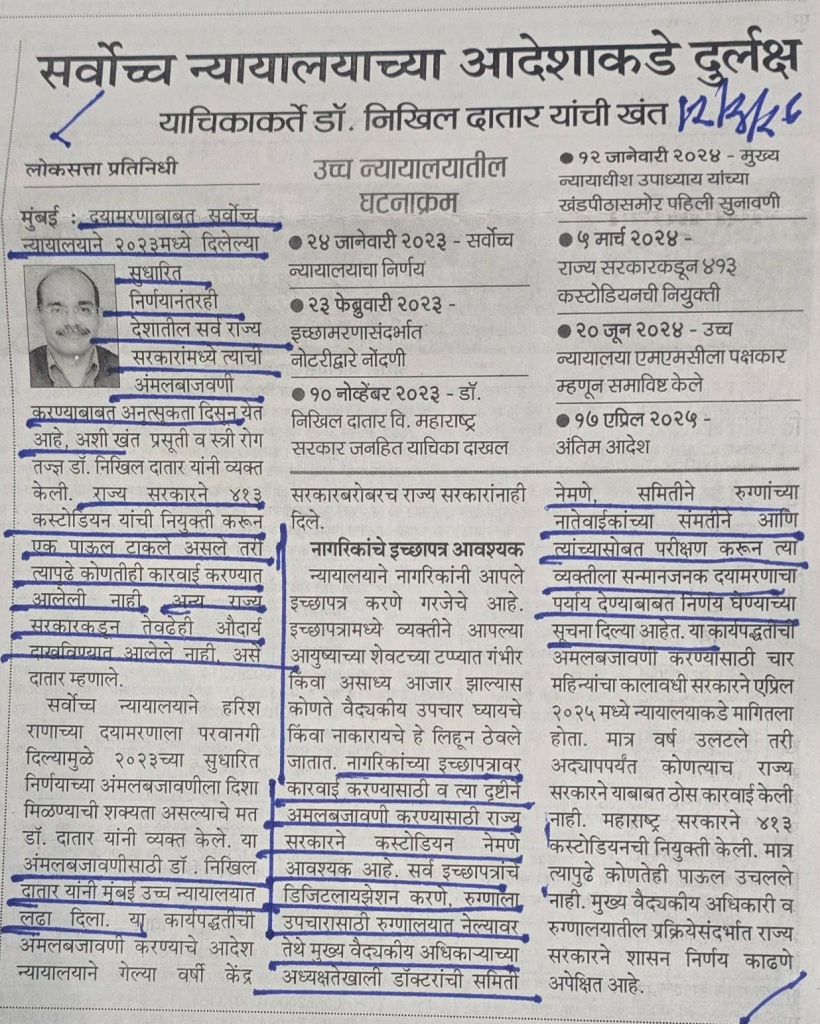 सर्वोच्च न्यायालयाच्या आदेशाकडे दुर्लक्ष
याचिकाकर्ते डॉ. निखिल दातार यांची खंत
लोकसत्ता प्रतिनिधी
मुंबई : दयामरणाबाबत सर्वोच्च
न्यायालयाने २०२३मध्ये दिलेल्या
सुधारित
निर्णयानंतरही
देशातील सर्व राज्य
सरकारांमध्ये त्याची
अंमलबाजवणी
करण्याबाबत अनुत्सुकता दिसून येत
आहे, अशी खंत प्रसूती व स्त्री रोग
तज्ज्ञ डॉ. निखिल दातार यांनी व्यक्त
केली. राज्य सरकारने ४१३
कस्टोडियन यांची नियुक्ती करून
एक पाऊल टाकले असले तरी
त्यापुढे कोणतीही कारवाई करण्यात
आलेली नाही. अन्य राज्य
सरकारकडून तेवढेही औदार्य
दाखविण्यात आलेले नाही, असे
दातार म्हणाले.
सर्वोच्च न्यायालयाने हरिश
राणाच्या दयामरणाला परवानगी
दिल्यामुळे २०२३च्या सुधारित
निर्णयाच्या अंमलबजावणीला दिशा
मिळण्याची शक्यता असल्याचे मत
डॉ. दातार यांनी व्यक्त केले. या
अंमलबजावणीसाठी डॉ . निखिल
दातार यांनी मुंबई उच्च न्यायालयात
लढा दिला. या कार्यपद्धतीची
अंमलबजावणी करण्याचे आदेश
न्यायालयाने गेल्या वर्षी केंद्र
उच्च न्यायालयातील
घटनाक्रम
● २४ जानेवारी २०२३ - सर्वोच्च
न्यायालयाचा निर्णय
● २३ फेब्रुवारी २०२३ -
इच्छामरणासंदर्भात
नोटरीद्वारे नोंदणी
● १० नोव्हेंबर २०२३ - डॉ.
निखिल दातार वि. महाराष्ट्र
सरकार जनहित याचिका दाखल
● १२ जानेवारी २०२४ - मुख्य
न्यायाधीश उपाध्याय यांच्या
खंडपीठासमोर पहिली सुनावणी
● ५ मार्च २०२४ -
राज्य सरकारकडून ४१३
कस्टोडियनची नियुक्ती
● २० जून २०२४ - उच्च
न्यायालया एमएमसीला पक्षकार
म्हणून समाविष्ट केले
● १७ एप्रिल २०२५ -
अंतिम आदेश
सरकारबरोबरच राज्य सरकारांनाही
दिले.
नागरिकांचे इच्छापत्र आवश्यक
न्यायालयाने नागरिकांनी आपले
इच्छापत्र करणे गरजेचे आहे.
इच्छापत्रामध्ये व्यक्तीने आपल्या
आयुष्याच्या शेवटच्या टप्प्यात गंभीर
किंवा असाध्य आजार झाल्यास
कोणते वैद्यकीय उपचार घ्यायचे
किंवा नाकारायचे हे लिहून ठेवले
जातात. नागरिकांच्या इच्छापत्रावर
कारवाई करण्यासाठी व त्या दृष्टीने
अमलबजावणी करण्यासाठी राज्य
सरकारने कस्टोडियन नेमणे
आवश्यक आहे. सर्व इच्छापत्रांचे
डिजिटलायझेशन करणे, रुग्णाला
उपचारासाठी रुग्णालयात नेल्यावर
तेथे मुख्य वैद्यकीय अधिकाऱ्याच्या
अध्यक्षतेखाली डॉक्टरांची समिती
नेमणे, समितीने रुग्णांच्या
नातेवाईकांच्या संमतीने आणि
त्यांच्यासोबत परीक्षण करून त्या
व्यक्तीला सन्मानजनक दयामरणाचा
पर्याय देण्याबाबत निर्णय घेण्याच्या
सूचना दिल्या आहेत. या कार्यपद्धतीची
अंमलबजावणी करण्यासाठी चार
महिन्यांचा कालावधी सरकारने एप्रिल
२०२५ मध्ये न्यायालयाकडे मागितला
होता. मात्र वर्ष उलटले तरी
अद्यापपर्यंत कोणत्याच राज्य
सरकारने याबाबत ठोस कारवाई केली
नाही. महाराष्ट्र सरकारने ४१३
कस्टोडियनची नियुक्ती केली. मात्र
त्यापुढे कोणतेही पाऊल उचलले
नाही. मुख्य वैद्यकीय अधिकारी व
रुग्णालयातील प्रक्रियेसंदर्भात राज्य
सरकारने शासन निर्णय काढणे
अपेक्षित आहे.